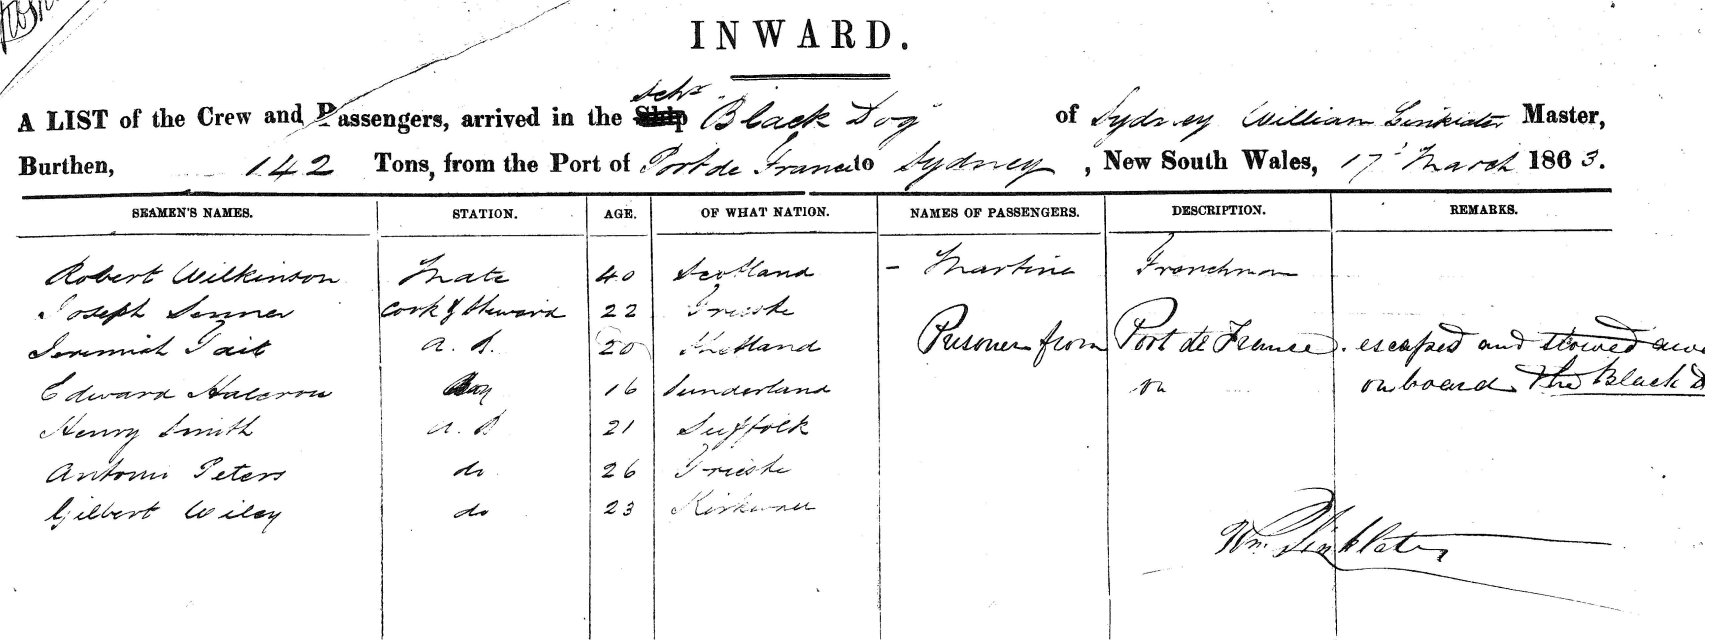 INWARD.
A LIST of the Crew and Passengers, arrived in the Ship Schr Black Dog of Sydney William Linklater Master,
Burthen, 142 Tons, from the Port of Port de France to Sydney, New South Wales, 17 March 1863.
SEAMEN'S NAMES. STATION. AGE. OF WHAT NATION. NAMES OF PASSENGERS. DESCRIPTION. REMARKS.
Robert Wilkinson Mate 40 Scotland - Martine Frenchman
Joseph Senner Cook & Steward 22 Trieste
Jeremiah Tait A.B. 20 Shetland Prisoner from Port de France. escaped and stowed awa
Edward Halcrow Boy 16 Sunderland on board the Black D
Henry Smith A.B 21 Suffolk
Antoni Peters do 26 Trieste
Gilbert Wiley do 23 Kirkwall
Wm. Linklater